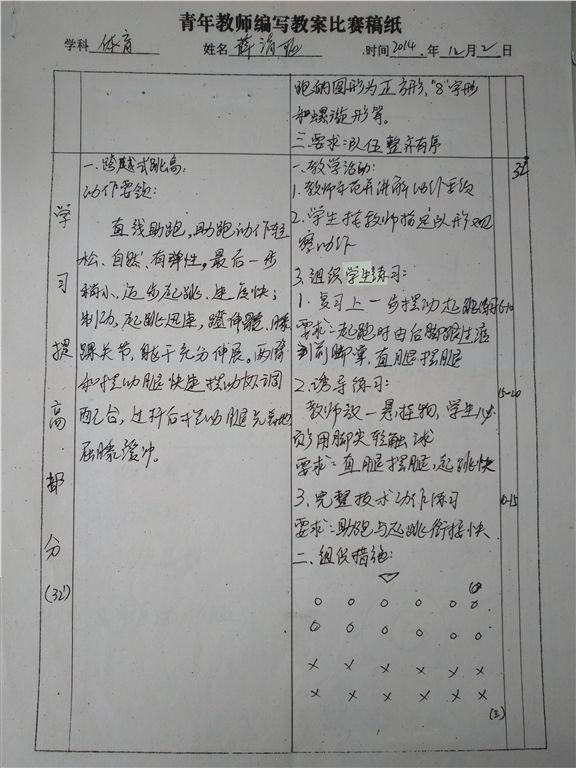 青年教师编写教案比赛稿纸
学科 体育 姓名 薛 时间 2014 年 12 月 2 日
跑的图形为正方形、"8"字形
和螺旋形等。
三.要求:队伍整齐有序
学习提高部分(32')
一.跨越式跳高:
动作要领:
直线助跑,助跑动作轻
松、自然、有弹性,最后一步
稍小、迈步起跳、速度快;
制动,起跳迅速,蹬伸髋、膝
踝关节,躯干充分伸展。两臂
和摆动腿快速摆动协调
配合,过杆后摆动腿
屈膝缓冲。
一.教学活动:
32'
1.教师示范并讲解动作要领
2.学生按教师指定队形观
察动作
3.组织学生练习:
1.复习上一步摆动起跳练习 6-10
要求:起跑时由后脚跟过渡
到前脚掌,直腿摆腿
2.诱导练习:
15-20
教师放一悬挂物,学生
用脚尖轻触球
要求:直腿摆腿,起跳快
3.完整技术动作练习
10-15
要求:助跑与起跳衔接快
二.组织措施: